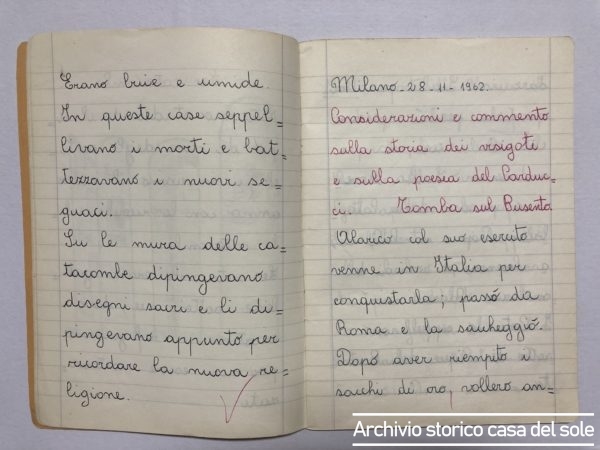 Erano buie e umide.
In queste case seppel=
livano i morti e bat=
tezzavano i nuovi se=
guaci.
Su le mura delle ca=
tacombe dipingevano
disegni sacri e li di=
pingevano appunto per
ricordare la nuova re=
ligione.
Milano-28-11-1962.
Considerazioni e commento
sulla storia dei visigoti
e sulla poesia del Carduc=
ci. Tomba sul Busento.
Alarico col suo esercito
venne in Italia per
conquistarla; passò da
Roma e la saccheggiò.
Dopo aver riempito i
sacchi di oro, vollero an=
Archivio storico casa del sole